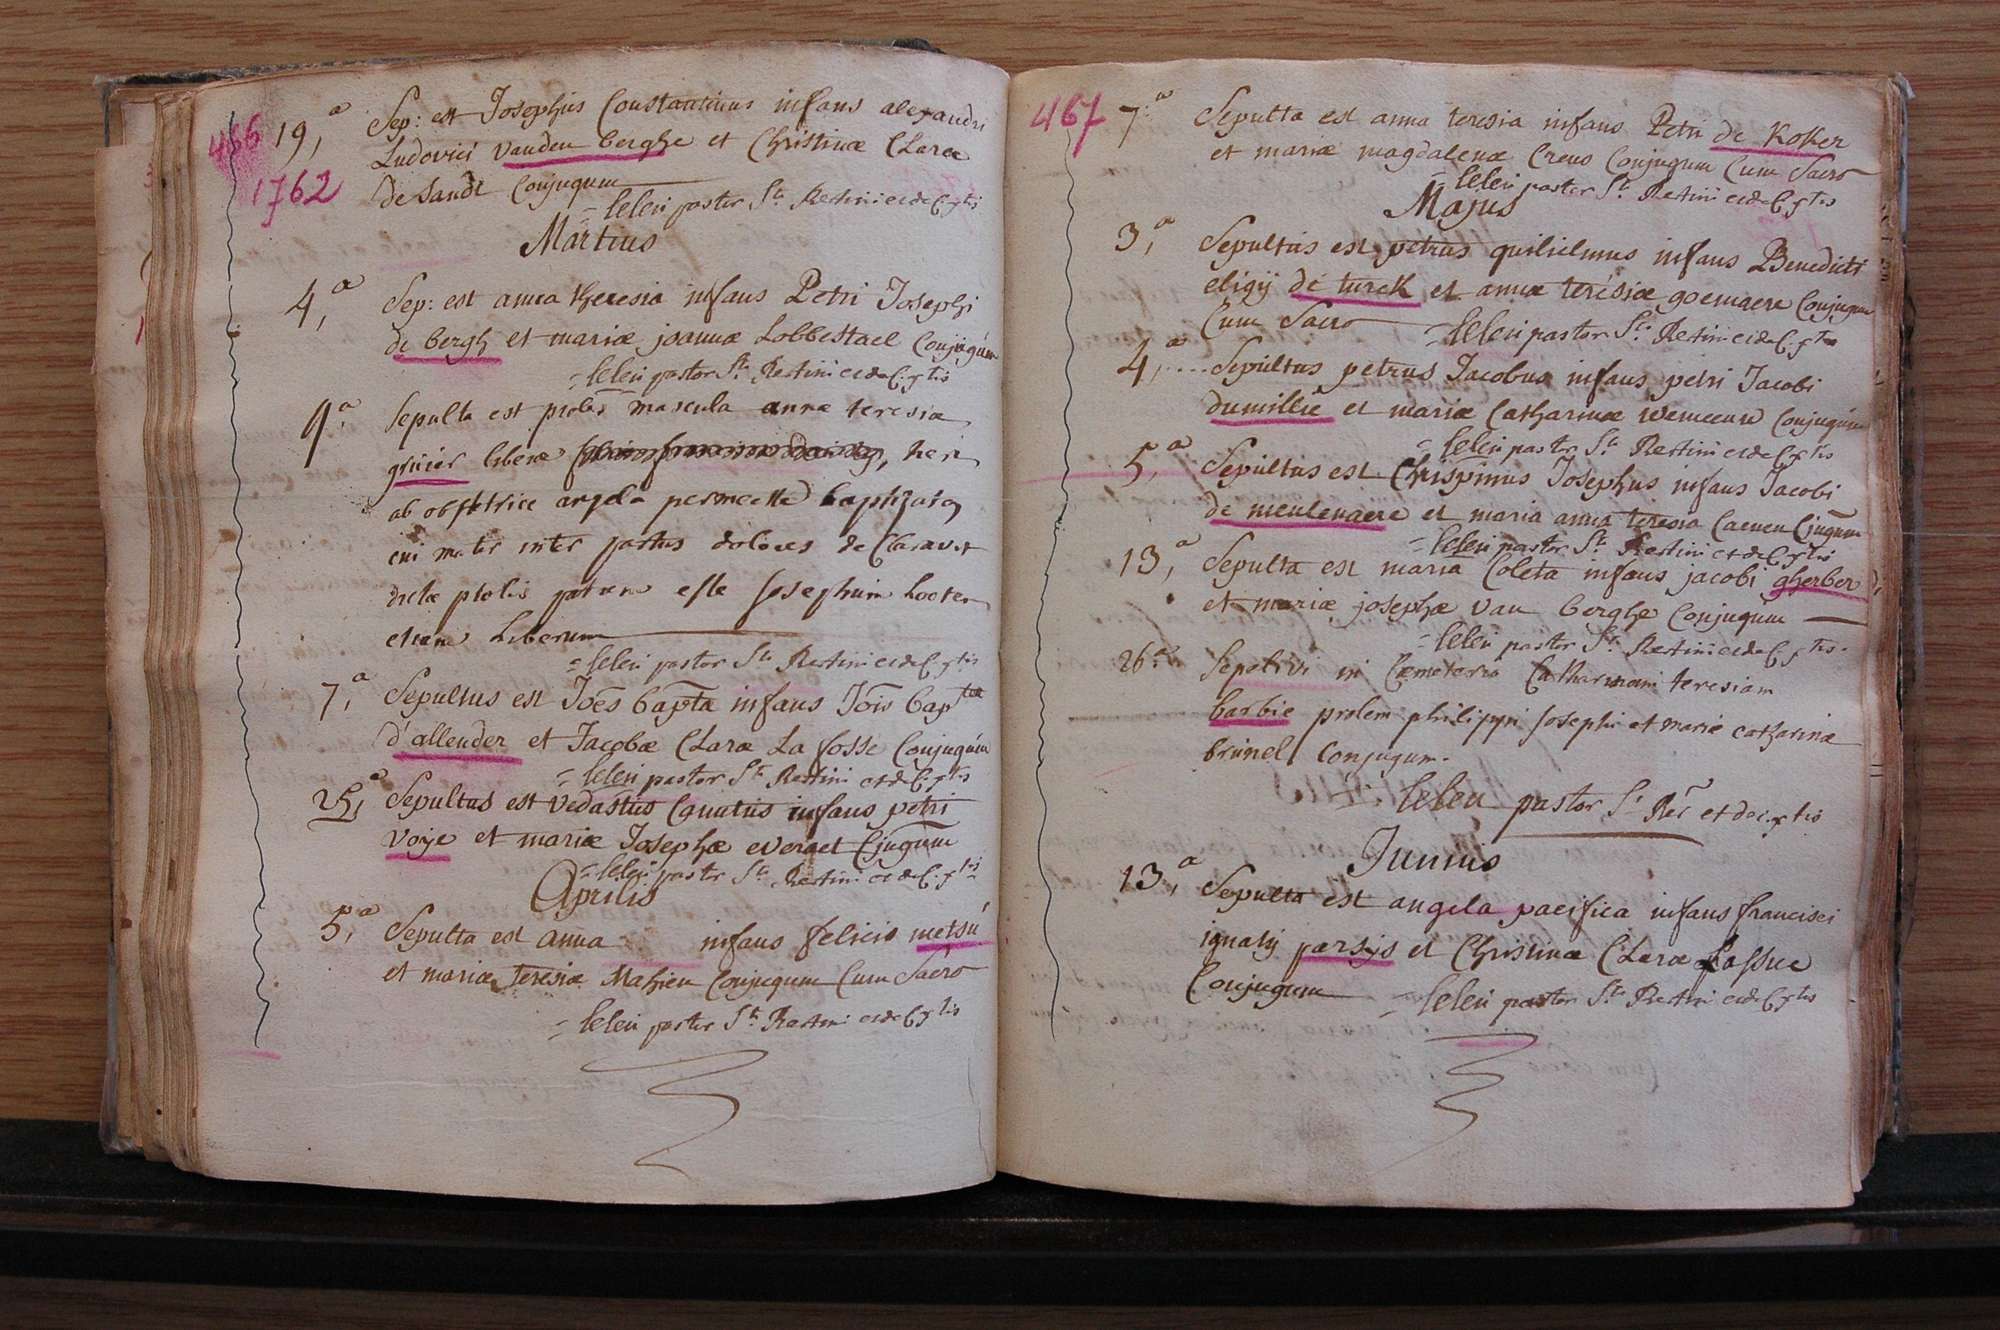 466
1762
19,a Sep: est Josephus Constantinus infans alexandri
Ludovici vanden berghe et Christinæ Claræ
de Sandt Conjugum
= leleu pastor Sti Restini et de C:ptis
Martius
4,a Sep: est anna theresia infans Petri Josephi
de bergh et mariæ joannæ Lobbestael Conjugum
= leleu pastor Sti Restini et de C:ptis
9a Sepulta est proles mascula annæ teresiæ
grusier liberæ heri
ab obstetrice angela permeette baptizata
cui mater inter partus dolores declaravit
dictæ prolis patrem esse Josephum hooten
etiam Liberum
= leleu pastor Sti Restini et de C:ptis
7,a Sepultus est Joes bapta infans Jois baptta
d'allender et Jacobæ Claræ La fosse Conjugum
= leleu pastor Sti Restini et de C:ptis
25,a Sepultus est vedastus Ignatius infans petri
voije et mariæ Josephæ everaet Cjugum
= leleu pastor Sti Restini et de C:ptis
Aprilis
5,a Sepulta est anna infans felicis metsú
et mariæ teresiæ Mahieu Conjugum Cum Sacro
= leleu pastor Sti Restini et de C:ptis
467
7a Sepulta est anna teresia infans Petri de Koker
et mariæ magdalenæ Creus Conjugum Cum Sacro
= leleu pastor Sti Restini et de C:ptis
Majus
3,a Sepultus est petrus guilielmus infans Benedicti
eligij de turck et annæ teresiæ goemaere Conjugum
Cum Sacro = leleu pastor Sti Restini et de C:ptis
4,a.... Sepultus petrus Jacobus infans petri Jacobi
dumillie et mariæ Catharinæ Conjugum
= leleu pastor Sti Restini et de C:ptis
5,a Sepultus est Chrispinus Josephus infans Jacobi
de meulenaere et maria anna teresia Caenen Cjugum
= leleu pastor Sti Restini et de C:ptis
13,a Sepulta est maria Coleta infans jacobi gherber
et mariæ josephæ van berghe Conjugum
= leleu pastor Sti Restini et de C:ptis.
26a Sepelivi in Cæmeterio Catharinam teresiam
barbie prolem philippi Josephi et mariæ catharinæ
brunel Conjugum.
leleu pastor Si Rer et de c:ptis
Junius
13,a Sepulta est angela pacifica infans francisci
ignatij parsijs et Christinæ Claræ
Conjugum = leleu pastor Sti Restini et de C:ptis